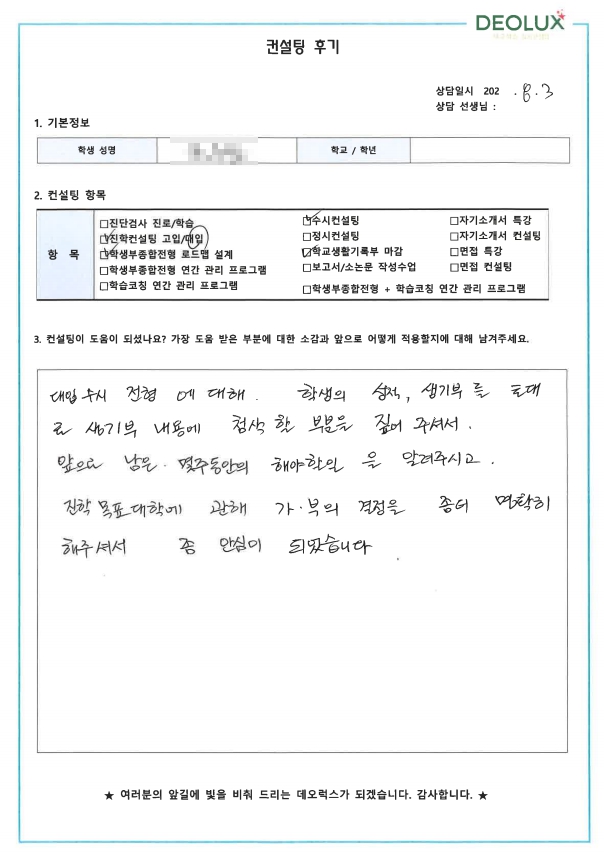 DEOLUX
컨설팅 후기
상담일시 202 . 8. 3
상담 선생님 :
1. 기본정보
학생 성명
학교 / 학년
2. 컨설팅 항목
항 목
□진단검사 진로/학습
□진학컨설팅 고입/대입
□학생부종합전형 로드맵 설계
□학생부종합전형 연간 관리 프로그램
□학습코칭 연간 관리 프로그램
□수시컨설팅
□정시컨설팅
□학교생활기록부 마감
□보고서/소논문 작성수업
□학생부종합전형 + 학습코칭 연간 관리 프로그램
□자기소개서 특강
□자기소개서 컨설팅
□면접 특강
□면접 컨설팅
3. 컨설팅이 도움이 되셨나요? 가장 도움 받은 부분에 대한 소감과 앞으로 어떻게 적용할지에 대해 남겨주세요.
대입 수시 전형 에 대해. 학생의 성적, 생기부 를 토대
로 생기부 내용에 첨삭 할 부분을 짚어 주셔서.
앞으로 남은 몇주동안의 해야할일 을 알려주시고.
진학 목표대학에 관해 가·부의 결정을 좀더 명확히
해주셔서 좀 안심이 되었습니다.
★ 여러분의 앞길에 빛을 비춰 드리는 데오럭스가 되겠습니다. 감사합니다. ★